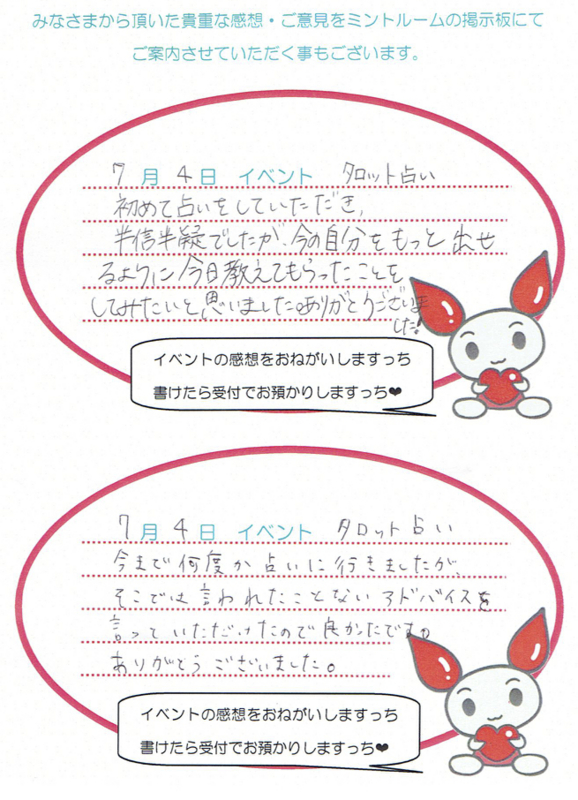 みなさまから頂いた貴重な感想・ご意見をミントルームの掲示板にて
ご案内させていただく事もございます。
7月4日 イベント タロット占い
初めて占いをしていただき、
半信半疑でしたが、今の自分をもっと出せ
るように今日教えてもらったことを
してみたいと思いました。ありがとうございま
した!
イベントの感想をおねがいしますっち
書けたら受付でお預かりしますっち❤
7月4日 イベント タロット占い
今まで何度か占いに行きましたが、
そこでは言われたことないアドバイスを
言っていただけたので良かったです。
ありがとうございました。
イベントの感想をおねがいしますっち
書けたら受付でお預かりしますっち❤